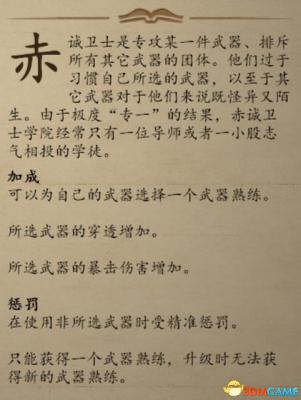 赤诚卫士是专攻某一件武器、排斥
所有其它武器的团体。他们过于
习惯自己所选的武器，以至于其
它武器对于他们来说既怪异又陌
生。由于极度“专一”的结果，赤诚卫
士学院经常只有一位导师或者一小股志
气相投的学徒。
加成
可以为自己的武器选择一个武器熟练。
所选武器的穿透增加。
所选武器的暴击伤害增加。
惩罚
在使用非所选武器时受精准惩罚。
只能获得一个武器熟练，升级时无法获
得新的武器熟练。